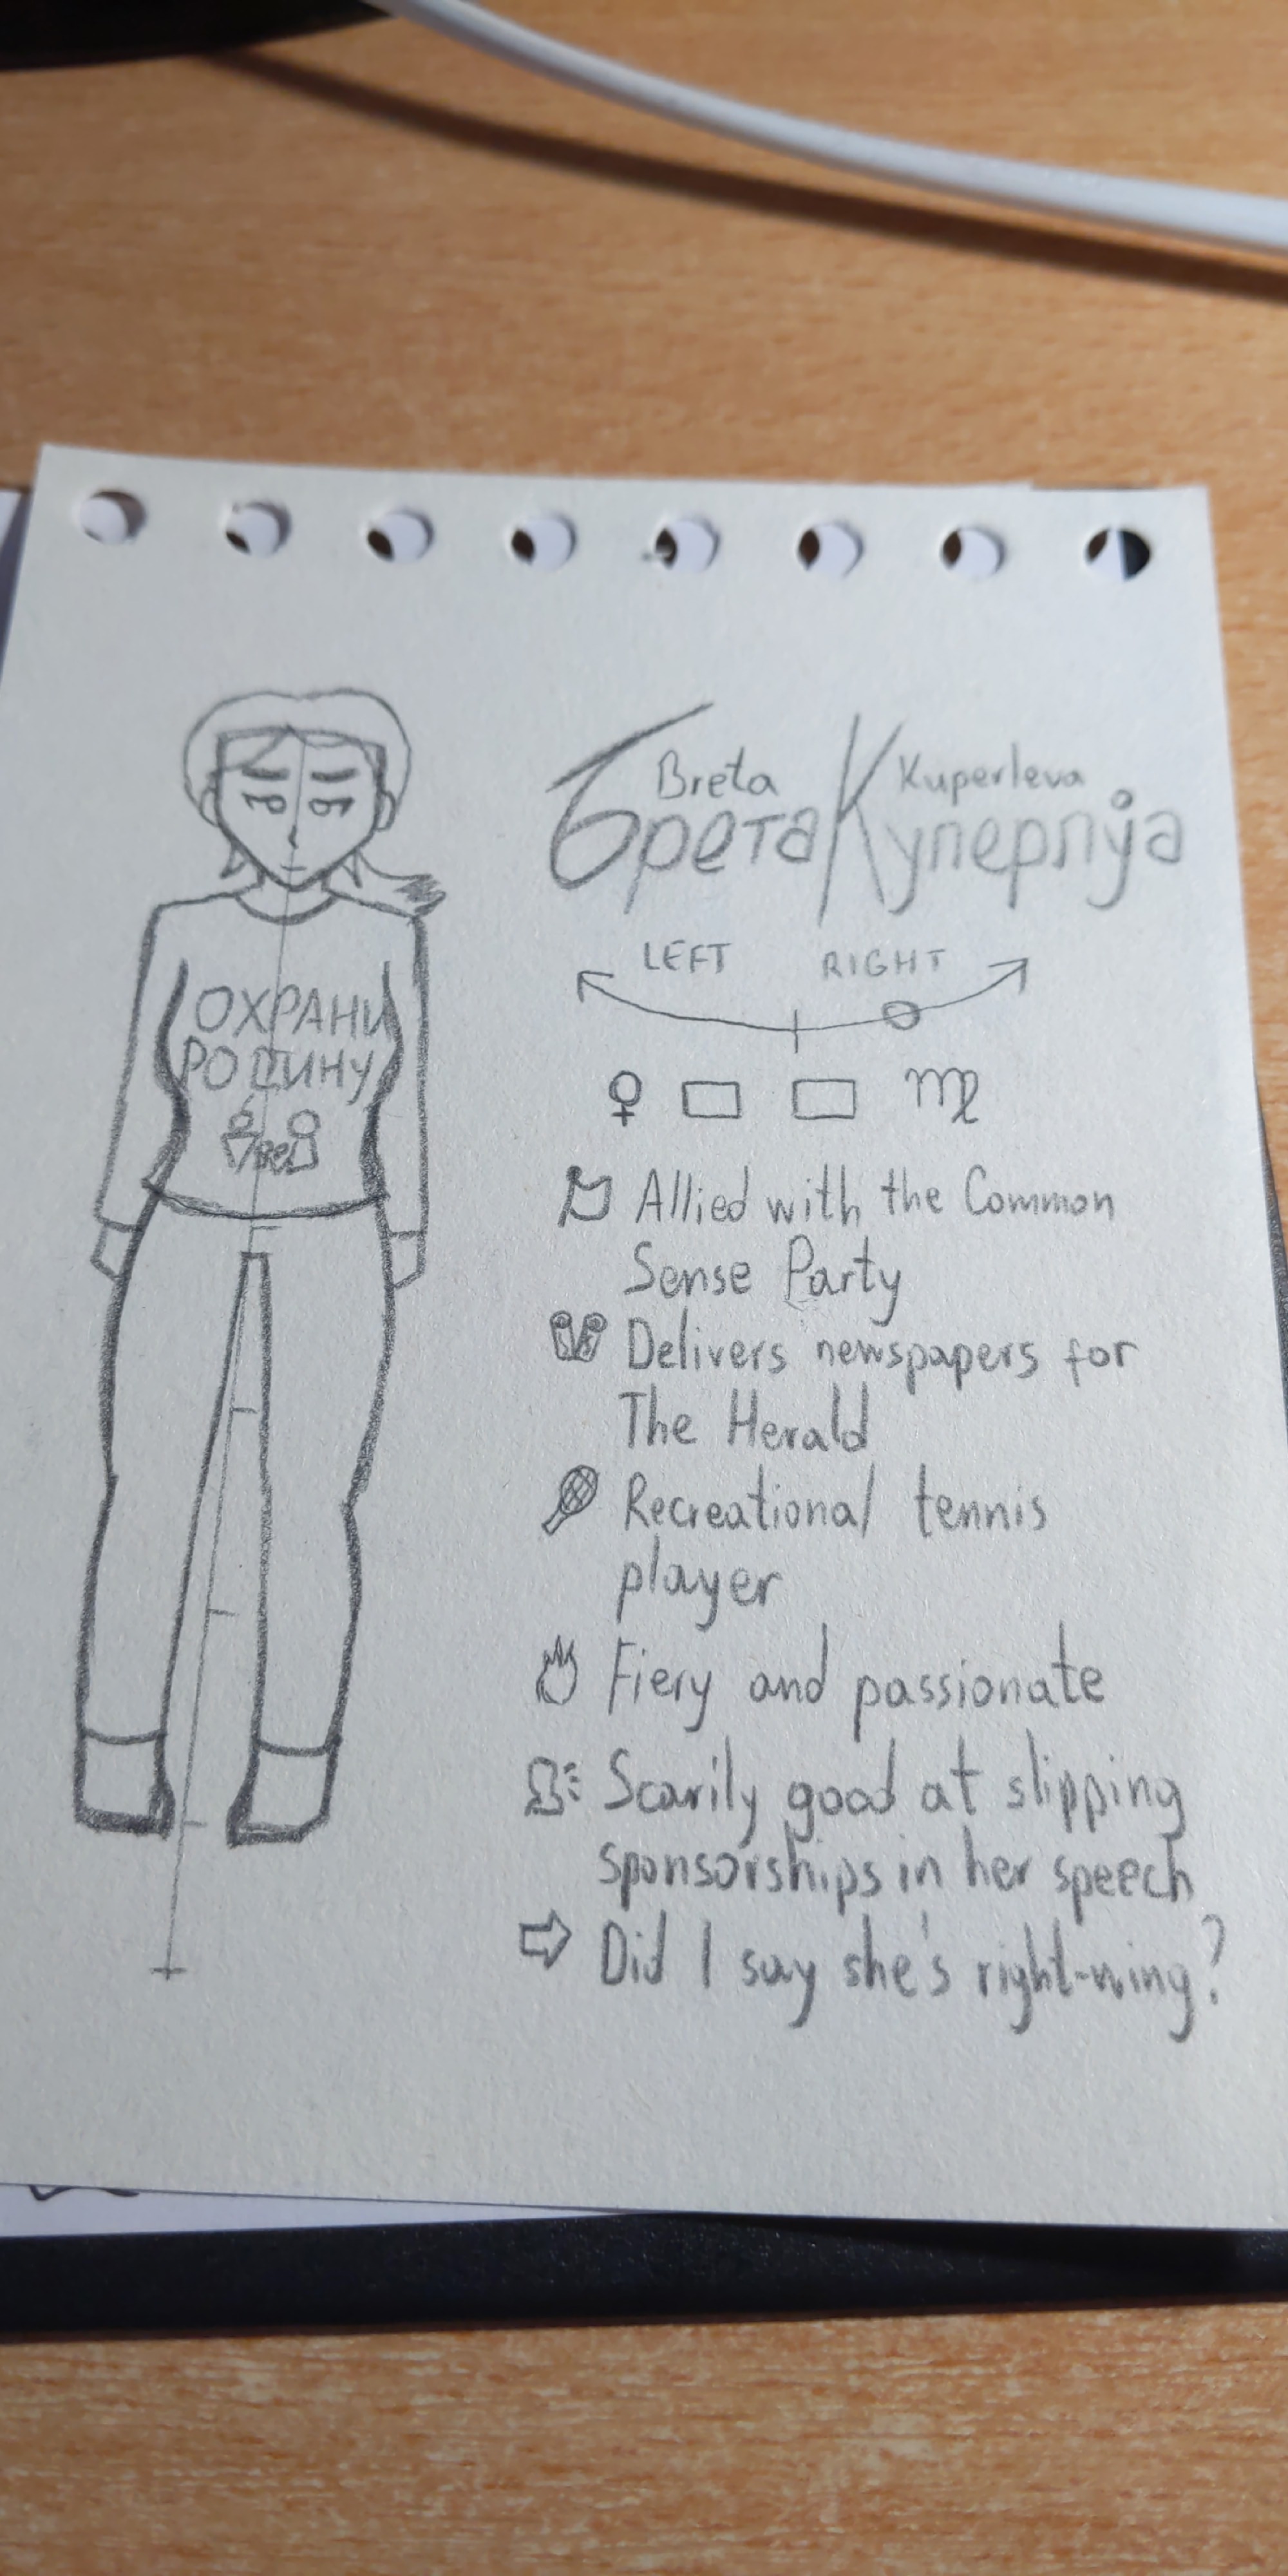 Breta Kuperleva
Брета Куперлјa
LEFT RIGHT
ОХРАНИ
РОДИНУ
Allied with the Common
Sense Party
Delivers newspapers for
The Herald
Recreational tennis
player
Fiery and passionate
Scarily good at slipping
sponsorships in her speech
Did I say she's right-wing?